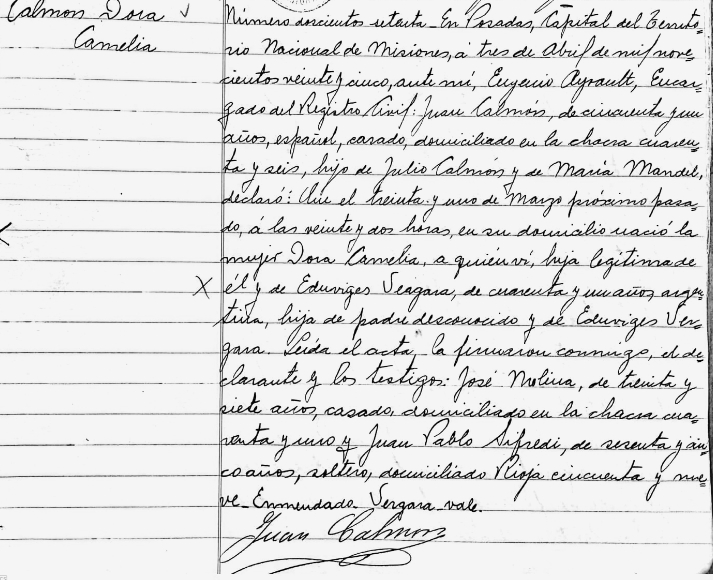 Calmon Dora
Camelia
Número doscientos setenta. En Posadas, Capital del Territo=
rio Nacional de Misiones, á tres de Abril de mil nove=
cientos veinte y cinco, ante mí, Eugenio Ayrault, Encar=
gado del Registro Civil: Juan Calmón, de cincuenta y un
años, español, casado, domiciliado en la chacra cuaren=
ta y seis, hijo de Julio Calmón y de María Mandel,
declaró: Que el treinta y uno de Marzo próximo pasa=
do, á las veinte y dos horas, en su domicilio nació la
mujer Dora Camelia, a quién ví, hija legítima de
X él y de Eduviges Vergara, de cuarenta y un años argen=
tina, hija de padre desconocido y de Eduviges Ver=
gara. Leída el acta, la firmaron conmigo, el de=
clarante y los testigos: José Molina, de treinta y
siete años, casado, domiciliado en la chacra cua=
renta y uno y Juan Pablo Sifredi, de sesenta y cin=
co años, soltero, domiciliado Rioja cincuenta y nue=
ve. Enmendado. Vergara. vale.
Juan Calmon